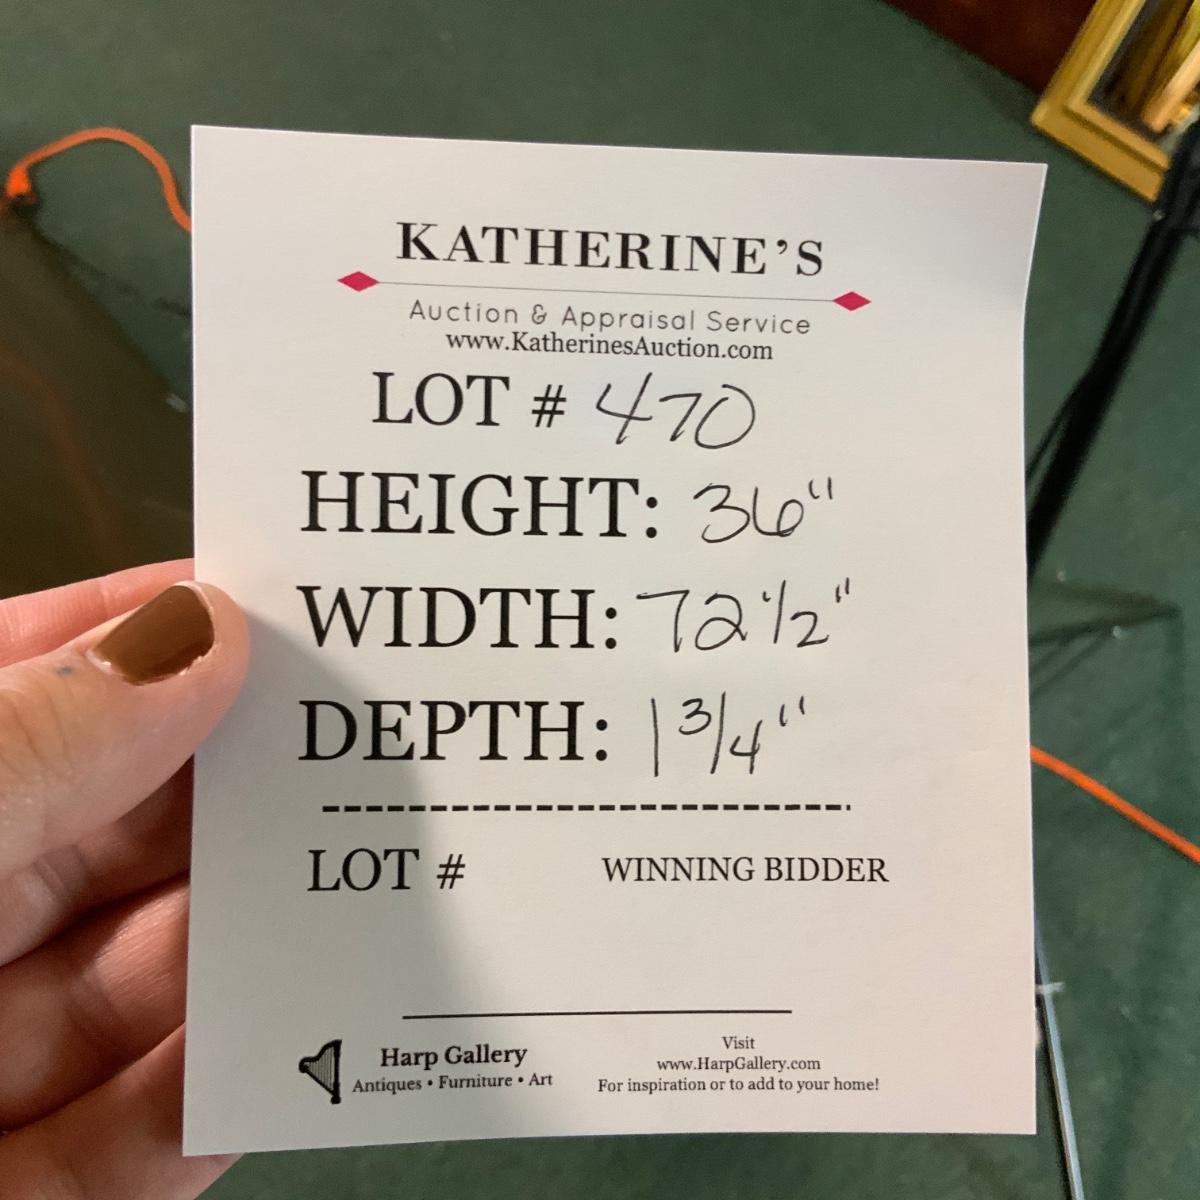 KATHERINE'S
Auction & Appraisal Service
www.KatherinesAuction.com
LOT # 470
HEIGHT: 36"
WIDTH: 72 1/2"
DEPTH: 1 3/4"
LOT # WINNING BIDDER
Harp Gallery
Antiques • Furniture • Art
Visit
www.HarpGallery.com
For inspiration or to add to your home!